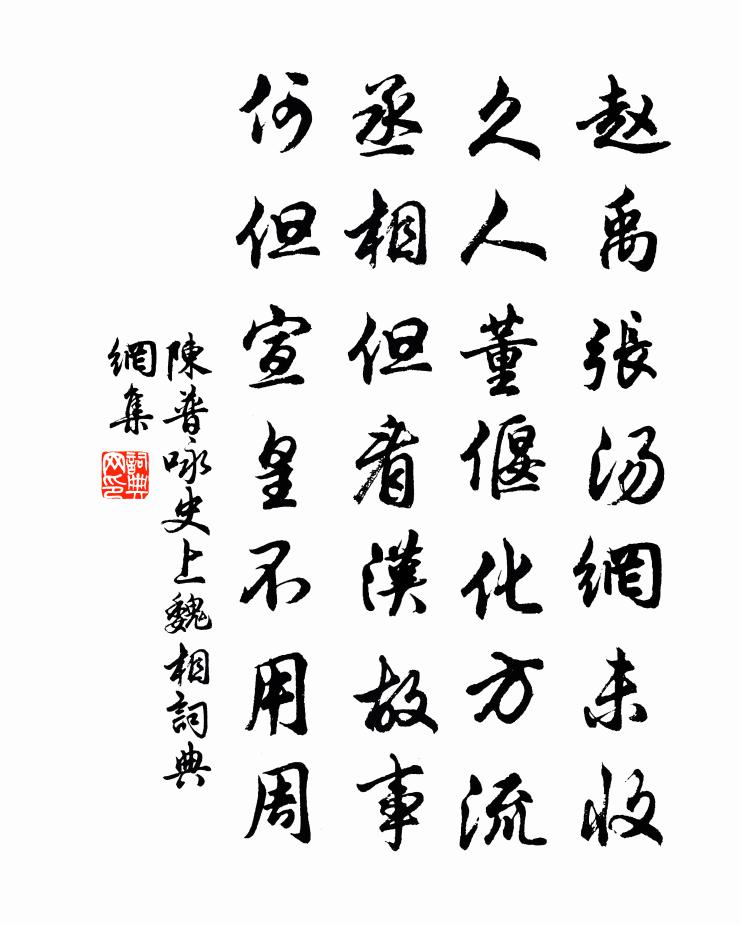 赵禹張湯網未收
久人董偃化方流
丞相但看漢故事
何但宣皇不用周
陳普咏史上魏相詞典
網集
詞典網印